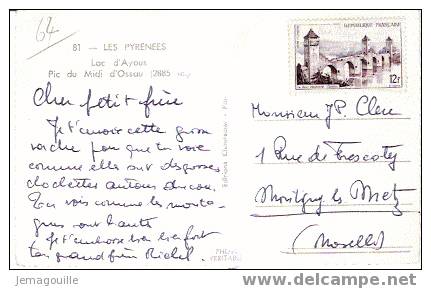 64
81 — LES PYRENEES
Lac d'Ayous
Pic du Midi d'Ossau (2885 m.)
Cher petit frère
Je t'envoie cette grosse
vache pour que tu voie
comme elles ont des grosses
clochettes autour du cou.
Tu vois comme les monta-
gnes sont hautes
Je t'embrasse bien fort
ton grand frère Michel.
REPUBLIQUE FRANÇAISE
12F
Monsieur JP. Cleu
1 Rue de Frescaty
Montigny les Metz
(Moselle)
VERITABLE
© jemagouille
delcampe.net